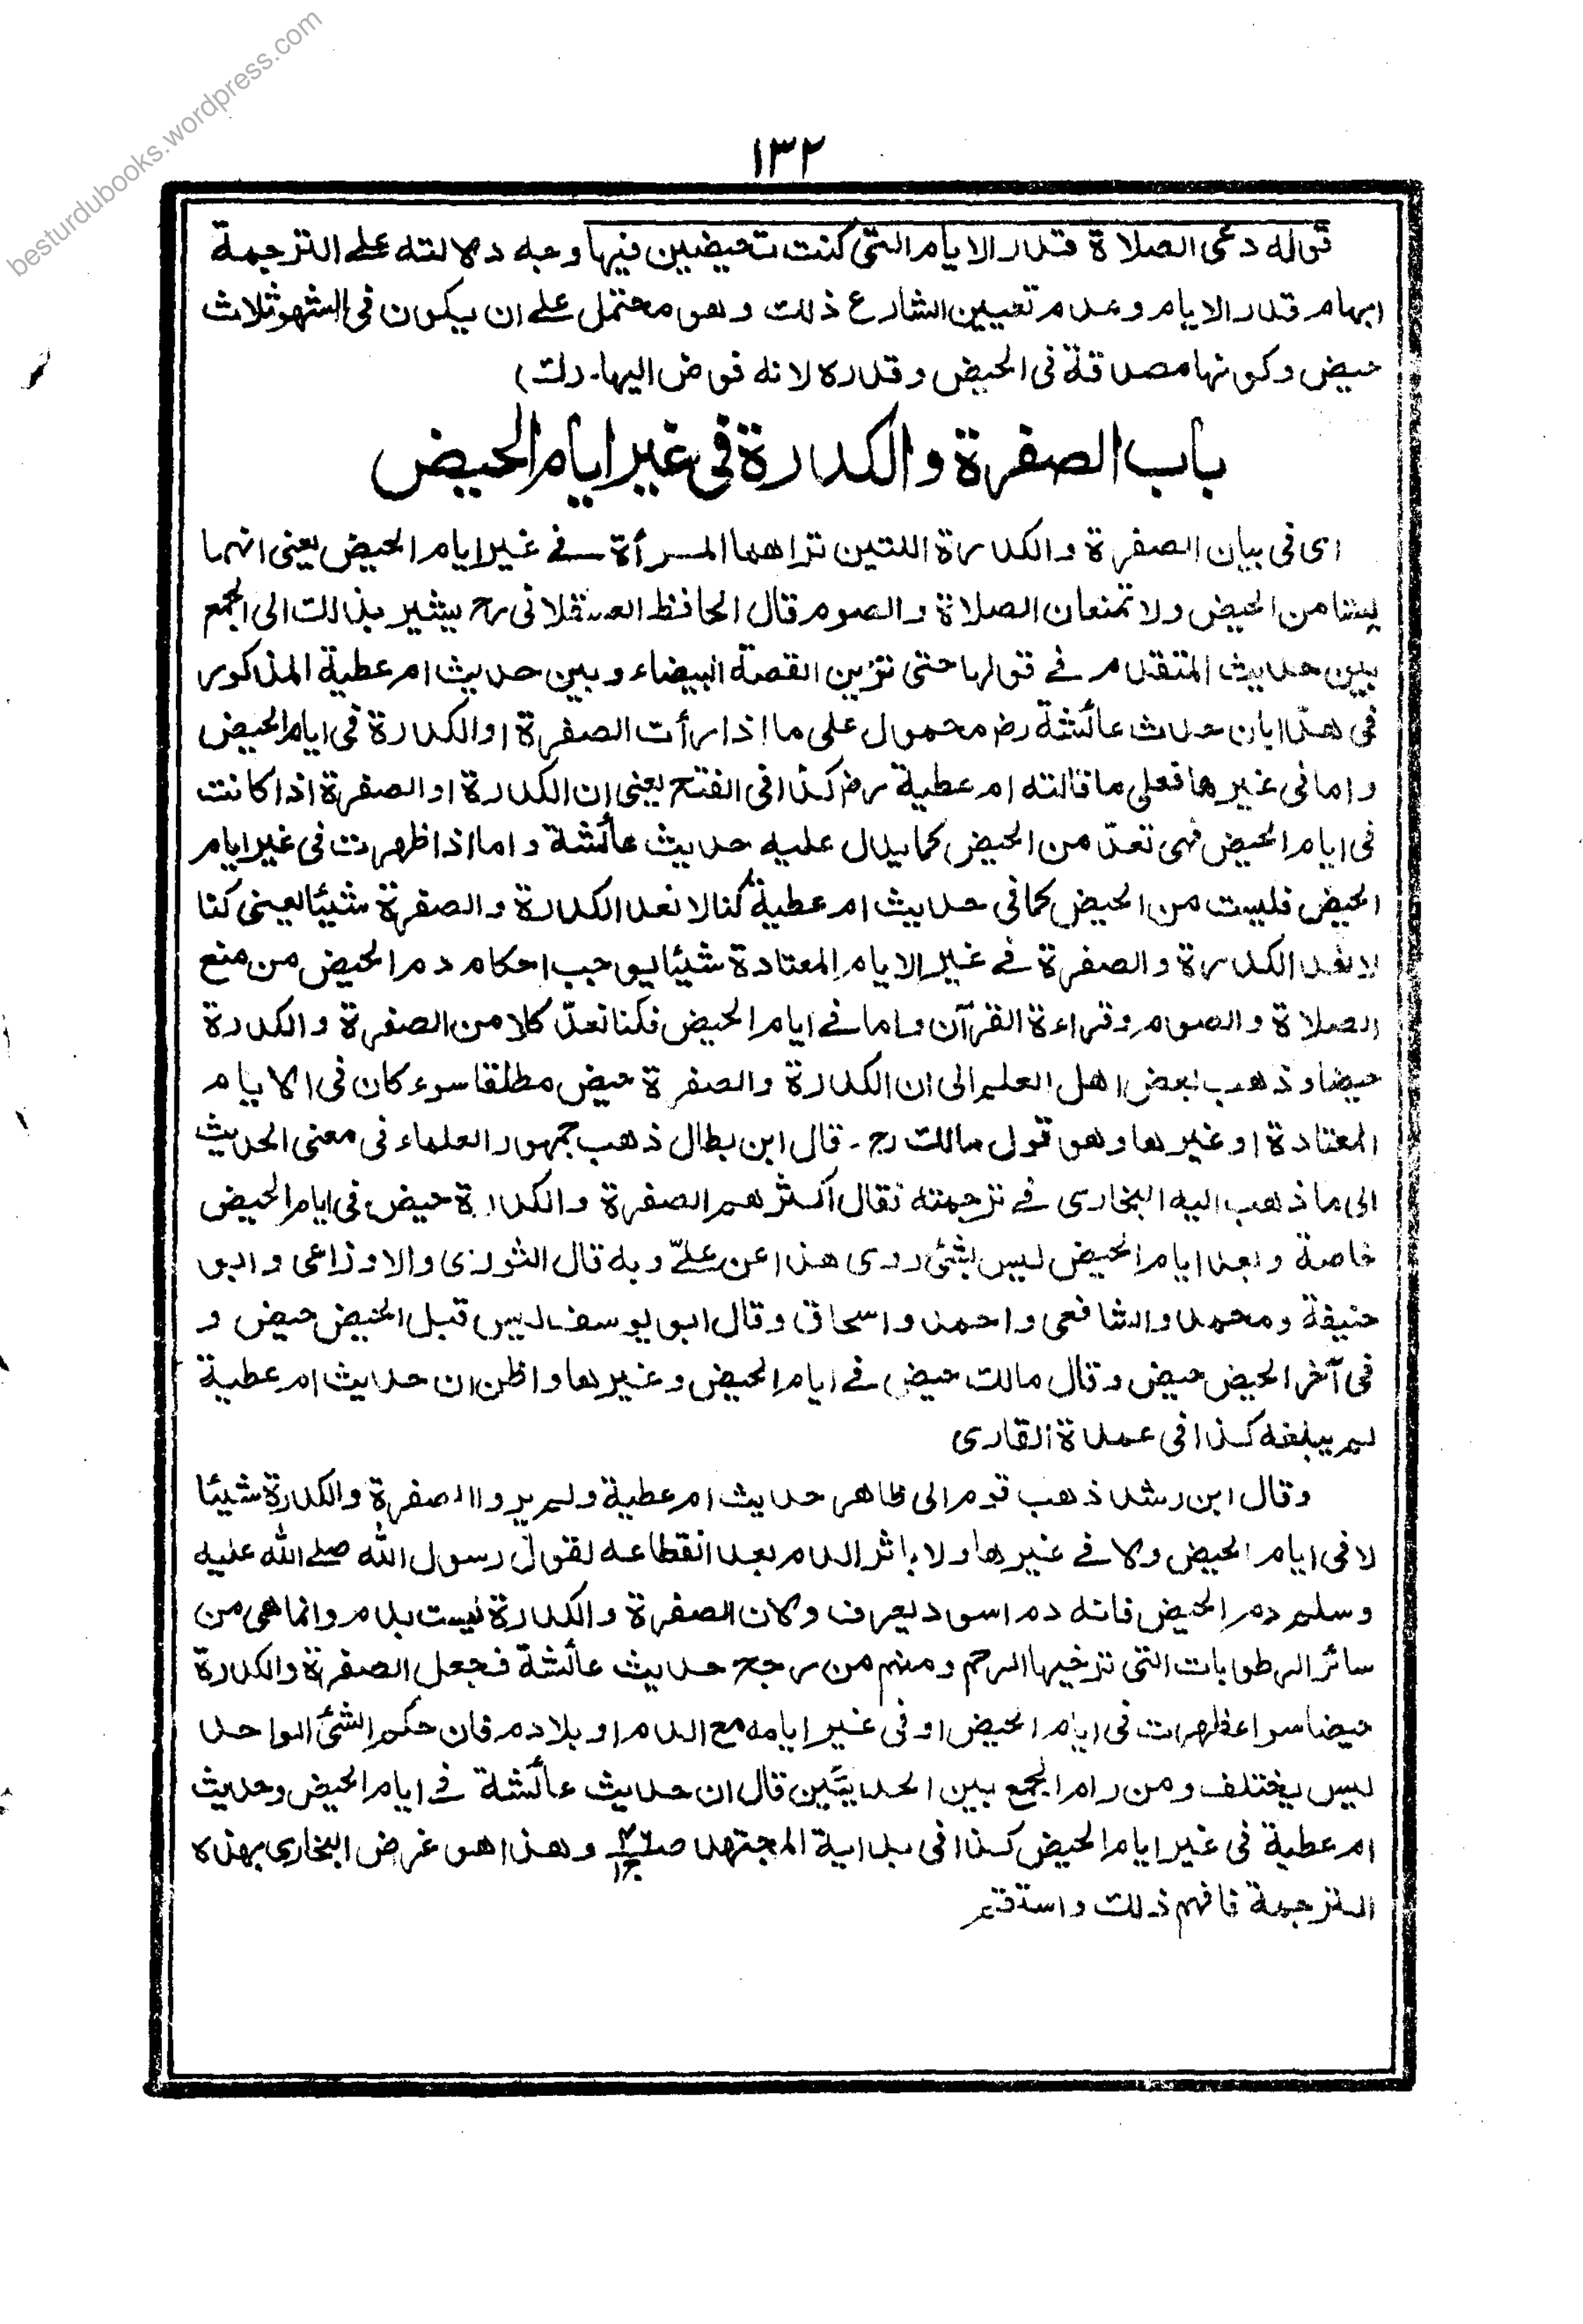 besturdubooks.wordpress.com
١٣٢
قوله دعى الصلاة قدر الايام التى كنت تحيضين فيها وجه دلالته على الترجمة
ابهام قدر الايام وعدم تعيين الشارع ذلك وهو محتمل على ان يكون فى الشهر ثلاث
حيض وكونها مصدقة فى الحيض وقدره لانه فوض اليها۔ (ك)
باب الصفرة والكدرة فى غير ايام الحيض
اى فى بيان الصفرة والكدرة اللتين تراهما المرأة فى غير ايام الحيض يعنى انهما
ليستا من الحيض ولا تمنعان الصلاة والصوم قال الحافظ العسقلانى رح يشير بذالك الى الجمع
بين حديث المتقدم فى قولها حتى ترين القصة البيضاء وبين حديث ام عطية المذكور
فى هذا بان حدث عائشة رض محمول على ما اذا رأت الصفرة او الكدرة فى ايام الحيض
واما فى غيرها فعلى ما قالته ام عطية رض كذا فى الفتح يعنى ان الكدرة او الصفرة اذا كانت
فى ايام الحيض فهى تعدّ من الحيض كما يدل عليه حديث عائشة واما اذا ظهرت فى غير ايام
الحيض فليست من الحيض كما فى حديث ام عطية كنا لا نعد الكدرة والصفرة شيئا يعنى كنا
لا نعد الكدرة والصفرة فى غير الايام المعتادة شيئا يوجب احكام دم الحيض من منع
الصلاة والصوم وقراءة القرآن واما فى ايام الحيض فكنا نعدّ كلا من الصفرة والكدرة
حيضا وذهب بعض اهل العلم الى ان الكدرة والصفرة حيض مطلقا سوء كان فى الايام
المعتادة او غيرها وهو قول مالك رح ۔ قال ابن بطال ذهب جمهور العلماء فى معنى الحديث
الى ما ذهب اليه البخارى فى ترجمته فقال اكثرهم الصفرة والكدرة حيض فى ايام الحيض
خاصة وبعد ايام الحيض ليس بشئ روى هذا عن علىّ وبه قال الثورى والاوزاعى وابو
حنيفة ومحمد والشافعى واحمد واسحاق وقال ابو يوسف ليس قبل الحيض حيض و
فى آخر الحيض حيض وقال مالك حيض فى ايام الحيض وغيرها واظن ان حديث ام عطية
لم يبلغه كذا فى عمدة القارى
وقال ابن رشد ذهب قوم الى ظاهر حديث ام عطية ولم يروا الصفرة والكدرة شيئا
لا فى ايام الحيض ولا فى غيرها ولا باثر الدم بعد انقطاعه لقول رسول الله صلى الله عليه
وسلم دم الحيض فانه دم اسود يعرف ولان الصفرة والكدرة ليست بدم وانما هى من
سائر الرطوبات التى ترخيها الرحم ومنهم من رجح حديث عائشة فجعل الصفرة والكدرة
حيضا سواء ظهرت فى ايام الحيض او فى غير ايامه مع الدم او بلا دم فان حكم الشئ الواحد
ليس يختلف ومن رام الجمع بين الحديثين قال ان حديث عائشة فى ايام الحيض وحديث
ام عطية فى غير ايام الحيض كذا فى بداية المجتهد وهذا هو غرض البخارى بهذه
الترجمة فافهم ذلك واستقم